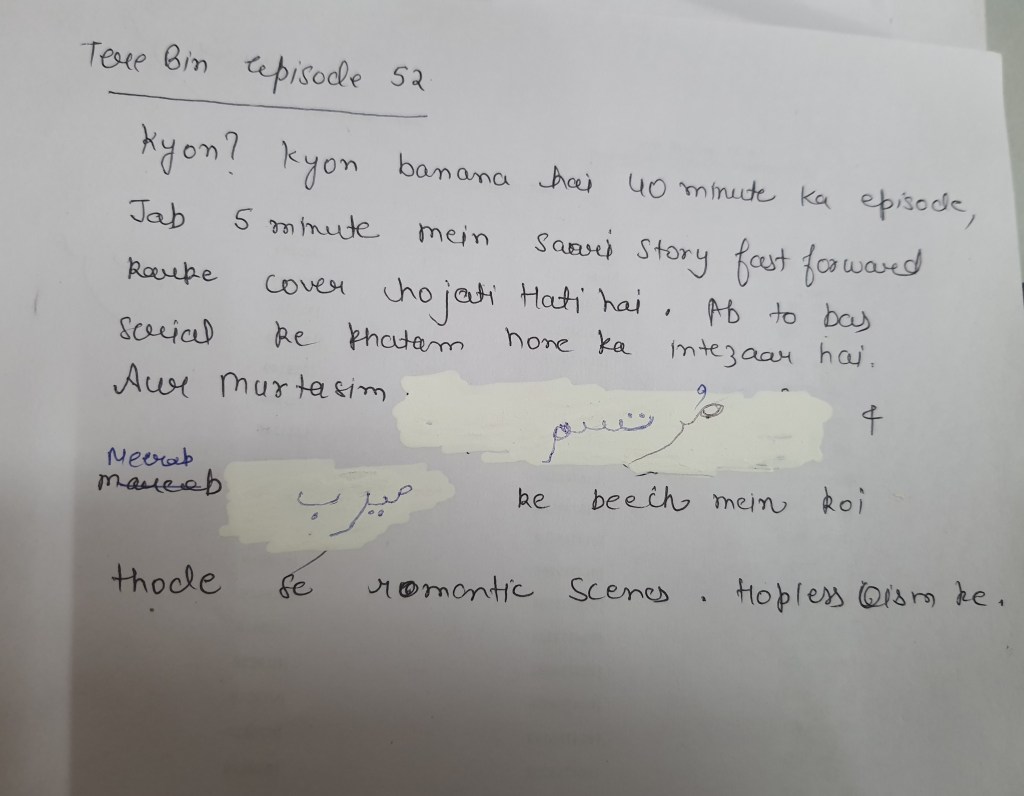 Tere Bin episode 52
Kyon? Kyon banana hai 40 minute ka episode,
Jab 5 minute mein saari story fast forward
karke cover ho jati Hati hai. Ab to bas
serial ke khatam hone ka intezaar hai.
Aur Murtasim. مُرتسم &
Meerab
mareeb میرب ke beech mein koi
thode se romantic scenes. Hopless Qism ke.